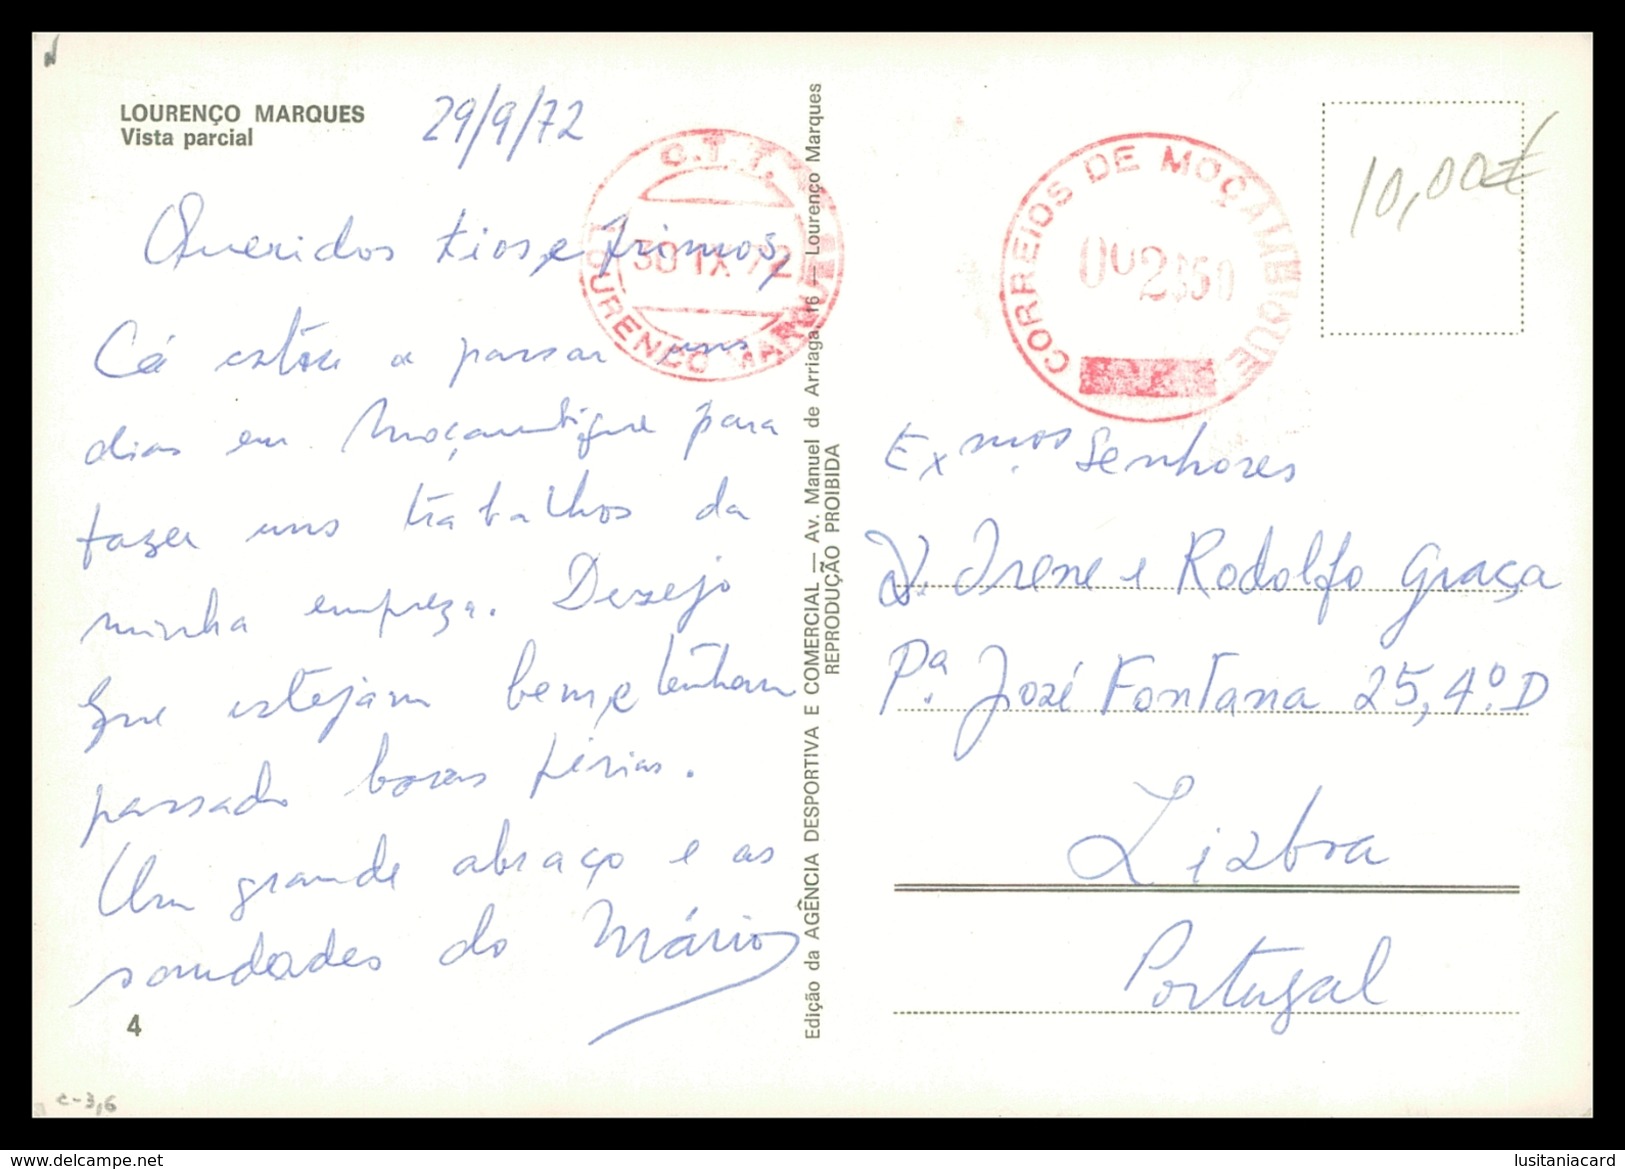 LOURENÇO MARQUES
Vista parcial
29/9/72
Queridos tios e primos,
Cá estou a passar uns
dias em Moçambique para
fazer uns trabalhos da
minha empreza. Desejo
que estejam bem, e tenham
passado boas férias.
Um grande abraço e as
saudades do Mário
4
c-3,6
C.T.T.
30 IX 72
LOURENÇO MARQUES
Edição da AGÊNCIA DESPORTIVA E COMERCIAL — Av. Manuel de Arriaga, 16 — Lourenço Marques
REPRODUÇÃO PROIBIDA
CORREIOS DE MOÇAMBIQUE
002$50
10,00€
Exmos. Senhores
D. Irene e Rodolfo Graça
Pª. José Fontana 25, 4º. D
Lisboa
Portugal
delcampe.net
lusitaniacard